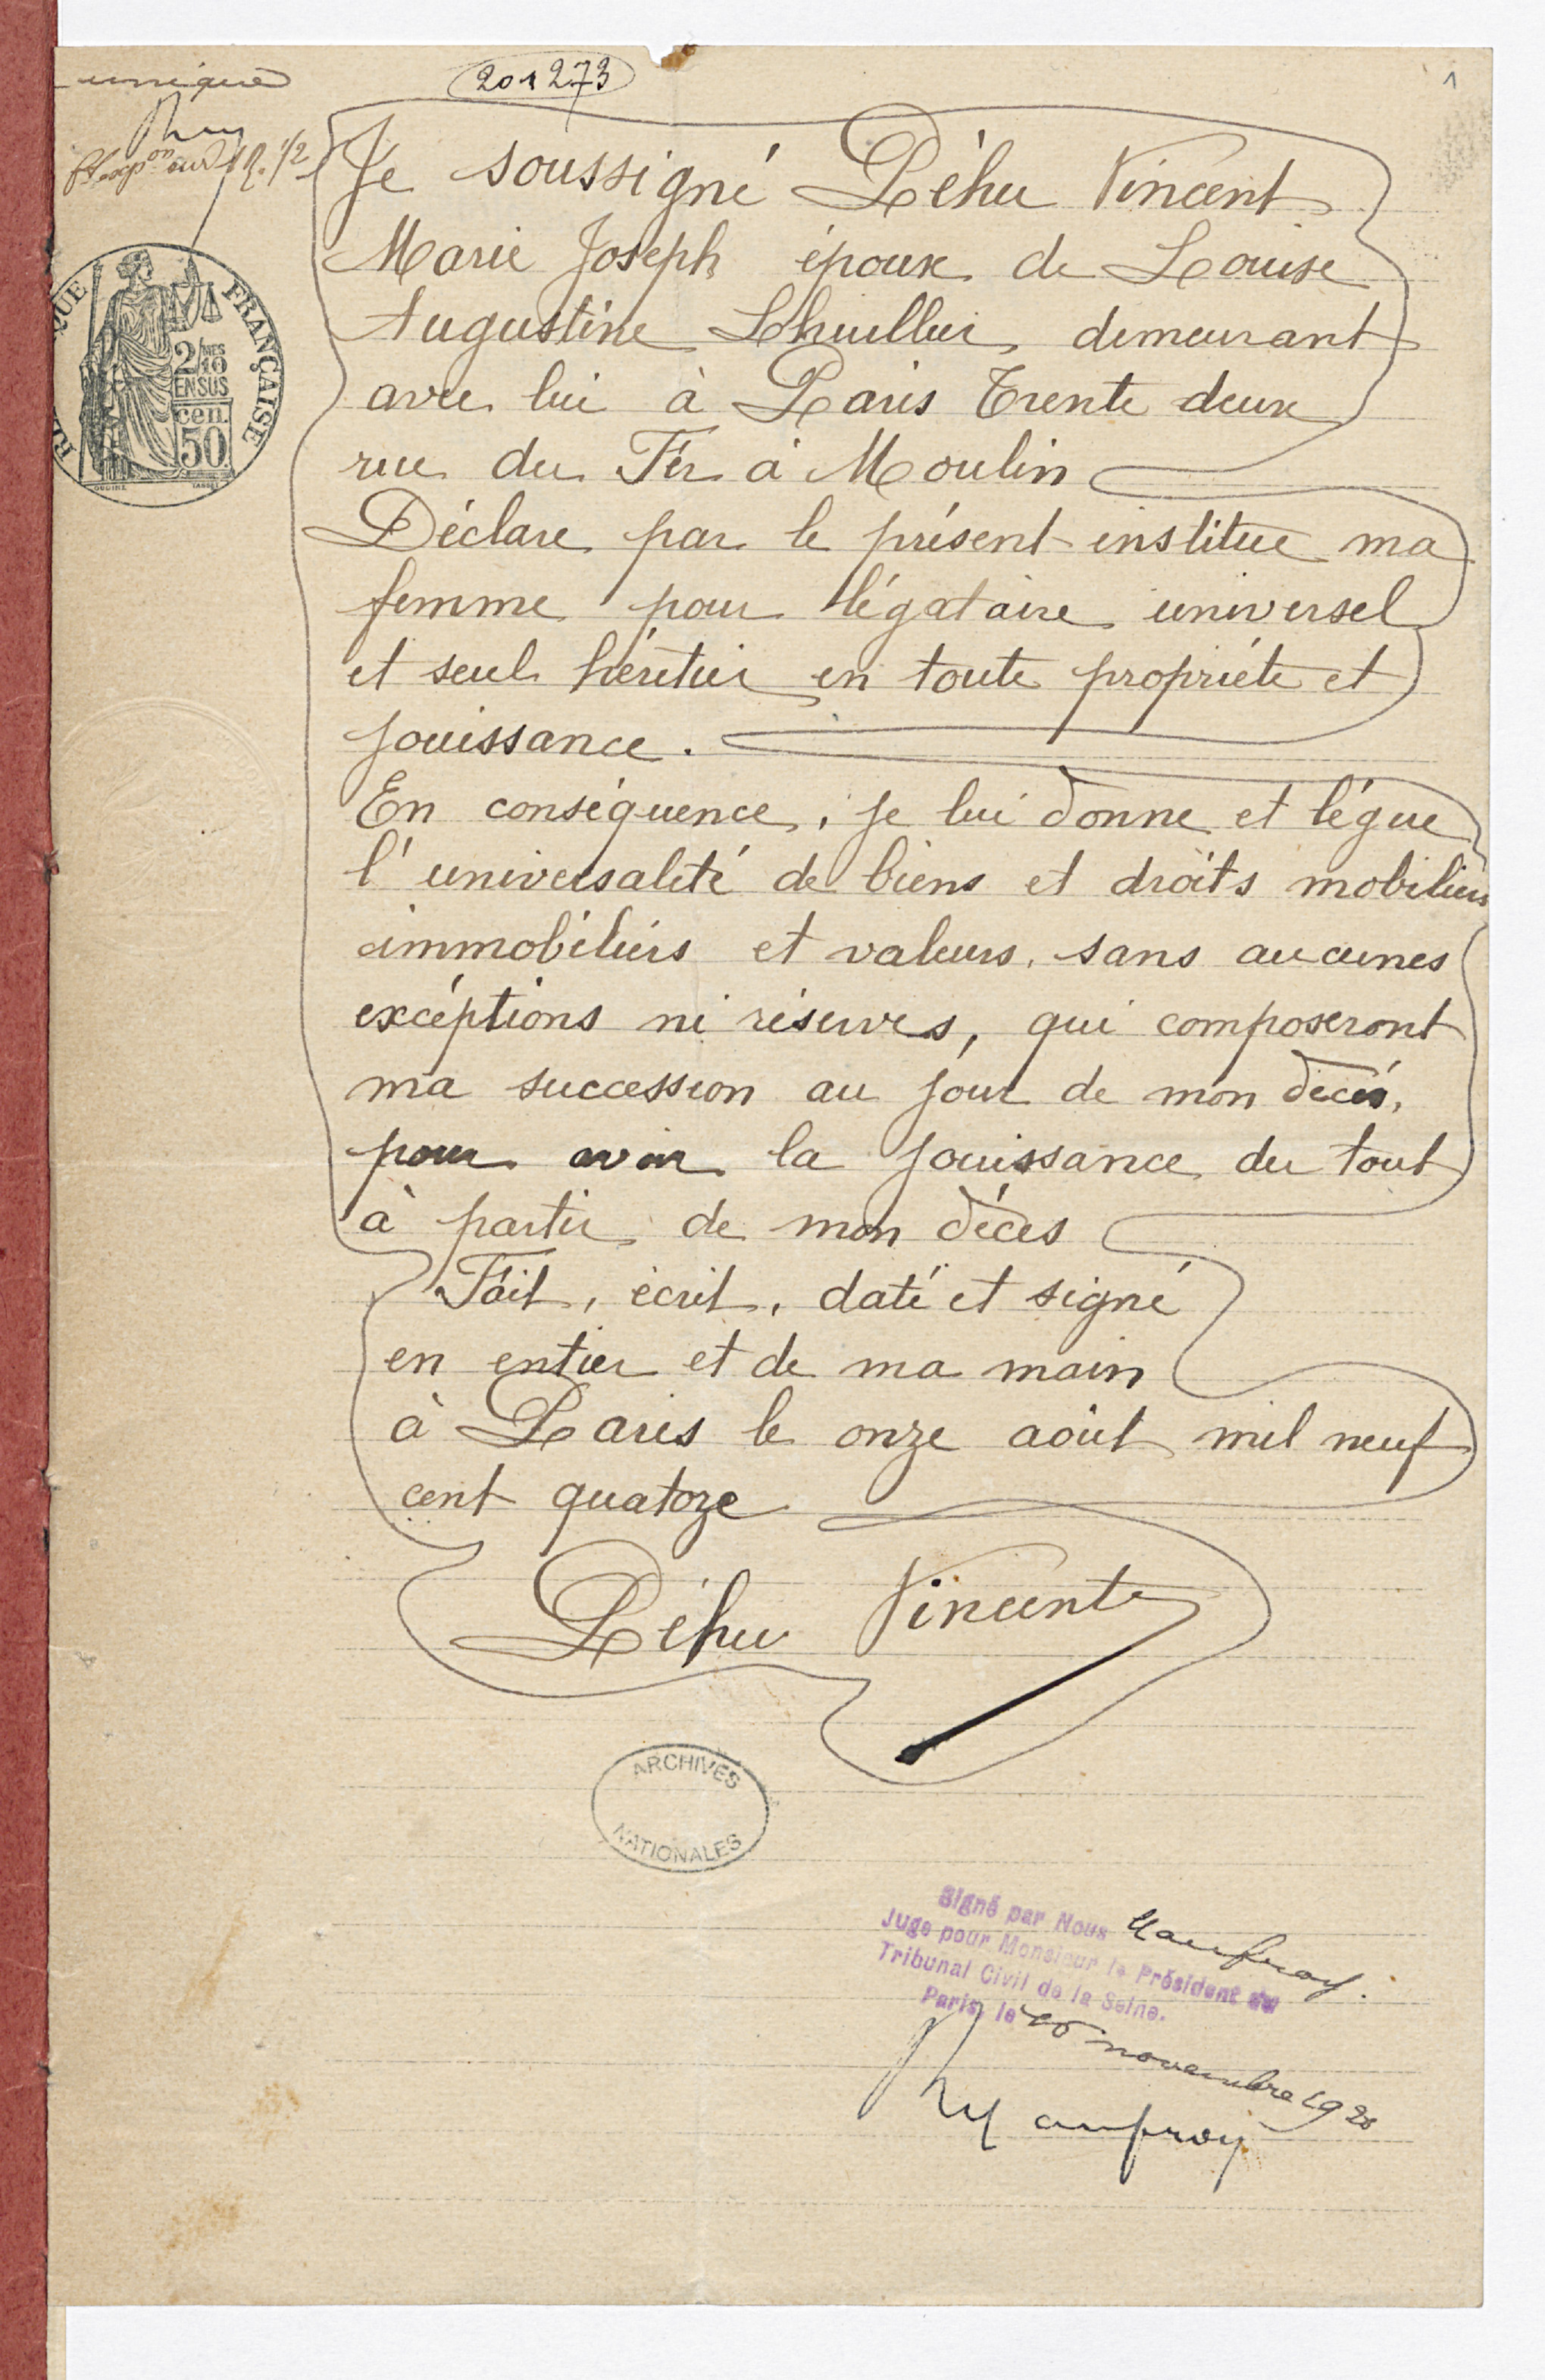 unique
201273
1
Je soussigné Péhu Vincent
Marie Joseph époux de Louise
Augustine Lhuillier demeurant
avec lui à Paris Trente deux
rue du Fer à Moulin
Déclare par le présent institue ma
femme pour légataire universel
et seul héritier en toute propriété et
jouissance.
En conséquence, je lui donne et légue
l'universalité de biens et droits mobiliers
immobiliers et valeurs, sans aucunes
excéptions ni réserves, qui composeront
ma succession au jour de mon décés,
pour avoir la jouissance du tout
à partir de mon décès
Fait, écrit, daté et signé
en entier et de ma main
à Paris le onze août mil neuf
cent quatoze
Péhu Vincent
FRANÇAISE
2/10 MES
EN SUS
cen.
50
ARCHIVES
NATIONALES
Signé par Nous Maufroy.
Juge pour Monsieur le Président du
Tribunal Civil de la Seine.
Paris, le novembre 1920
Maufroy